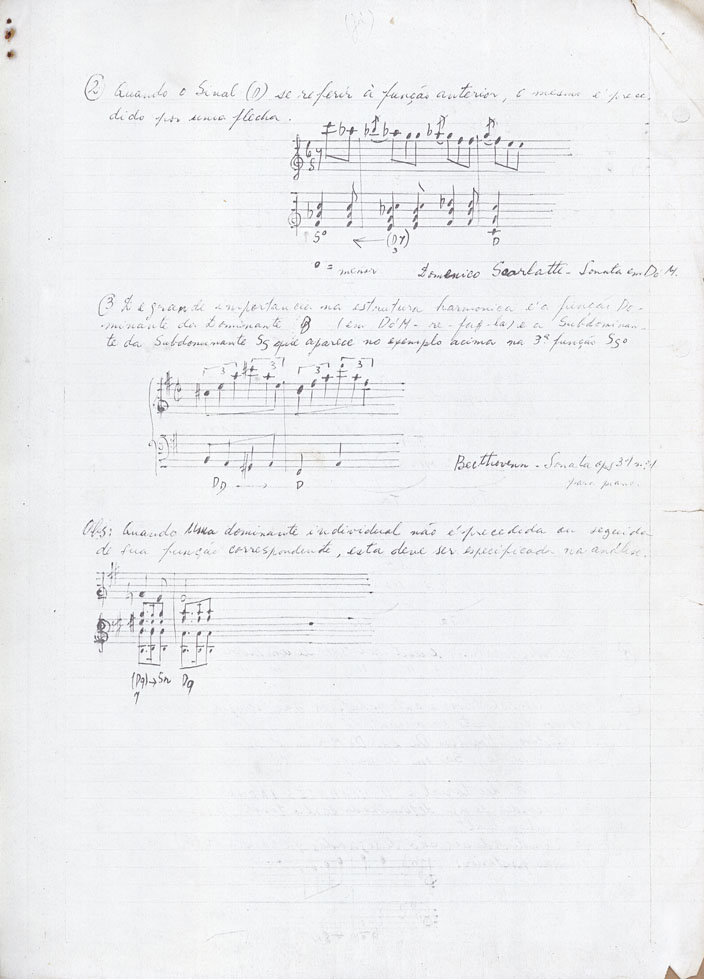 ② Quando o Sinal (D) se referir à função anterior, o mesmo é prece-
dido por uma flecha.
S° ← (D7) D
3
° = menor Domenico Scarlatti - Sonata em Dó M.
③ É de grande importancia na estrutura harmonica é a função Do-
minante da Dominante (em Dó M - re - fa# - la) e a Subdominan-
te da Subdominante Ss que aparece no exemplo acima na 3ª função Ss°
3 3 3 3
DD D
Beethovenn - Sonata ops 31 nº 1
para piano.
Obs: Quando Uma dominante individual não é precedida ou seguida
de sua função correspondente, esta deve ser especificada na análise.
(D9) → Sr D9
7